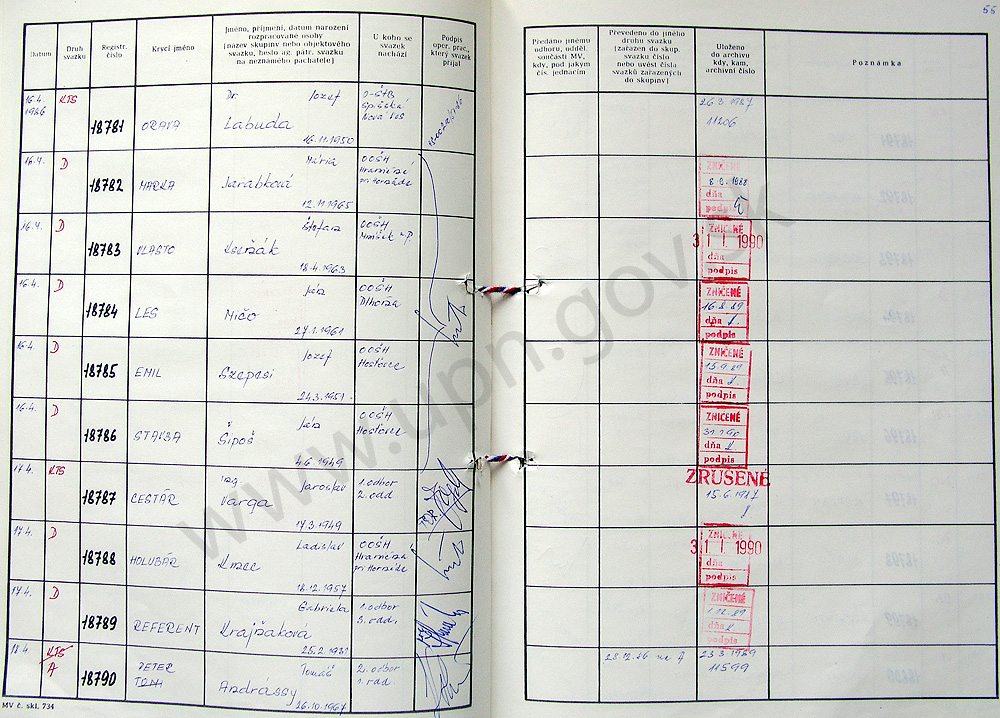 55
Datum
Druh svazku
Registr. číslo
Krycí jméno
Jméno, příjmení, datum narození
rozpracované osoby
(název skupiny nebo objektového
svazku, heslo ag. pátr. svazku
na neznámého pachatele)
U koho se
svazek
nachází
Podpis
oper. prac.,
který svazek
přijal
Předáno jinému
odboru, odděl.
součásti MV,
kdy, pod jakým
čís. jednacím
Převedeno do jiného
druhu svazku
(zařazen do skup.
svazku číslo
nebo uvést čísla
svazků zařazených
do skupiny)
Uloženo
do archivu
kdy, kam,
archivní číslo
Poznámka
16.4. 1986 KTS 18781 ORAVA
Dr. Jozef
Labuda
16.11.1950
Spišská
Nová Ves
26.3.1987
11206
16.4. D 18782
Mária
Jarábková
12.11.1965
OOŠH
ZNIČENÉ
dňa
podpis
16.4. D 18783 VLASTO
Štefan
18.4.1963
OOŠH
ZNIČENÉ
31 1. 1990
dňa
podpis
16.4. D 18784 LES
Ján
Mičo
27.1.1961
OOŠH
ZNIČENÉ
16.8.89
dňa
podpis
16.4. D 18785 EMIL
Jozef
Szepesi
24.3.1951
OOŠH
Hosťovce
ZNIČENÉ
15.9.89
dňa
podpis
16.4. D 18786 STAVBA
Ján
Šipoš
4.6.1949
OOŠH
Hosťovce
ZNIČENÉ
dňa
podpis
17.4. KTS 18787 CESTÁR
Ing. Jaroslav
Varga
17.3.1949
1.odbor
2.odd
ZRUŠENÉ
15.6.1987
17.4. D 18788 HOLUBÁR
Ladislav
Kmec
18.12.1957
OOŠH
ZNIČENÉ
31 1. 1990
dňa
podpis
17.4. D 18789 REFERENT
Gabriela
Krajžáková
25.2.1931
1.odbor
3.odd.
ZNIČENÉ
dňa
podpis
18.4. KTS A 18790 PETER
TOMI
Tomáš
Andrássy
26.10.1967
2.odbor
1.odd.
23.12.86 na A
23.3.1989
11599
MV č. skl. 734
www.upn.gov.sk